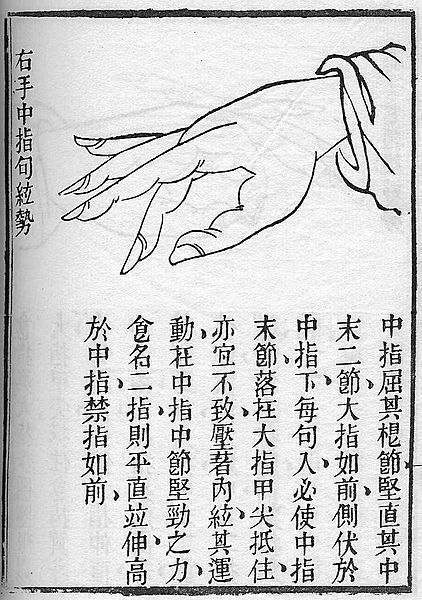 右手中指句絃勢
中指屈其棍節堅直其中
末二節大指如前側伏於
中指下每句入必使中指
末節落在大指甲尖抵住
亦宜不致壓著內絃其運
動在中指中節堅勁之力
食名二指則平直竝伸高
於中指禁指如前